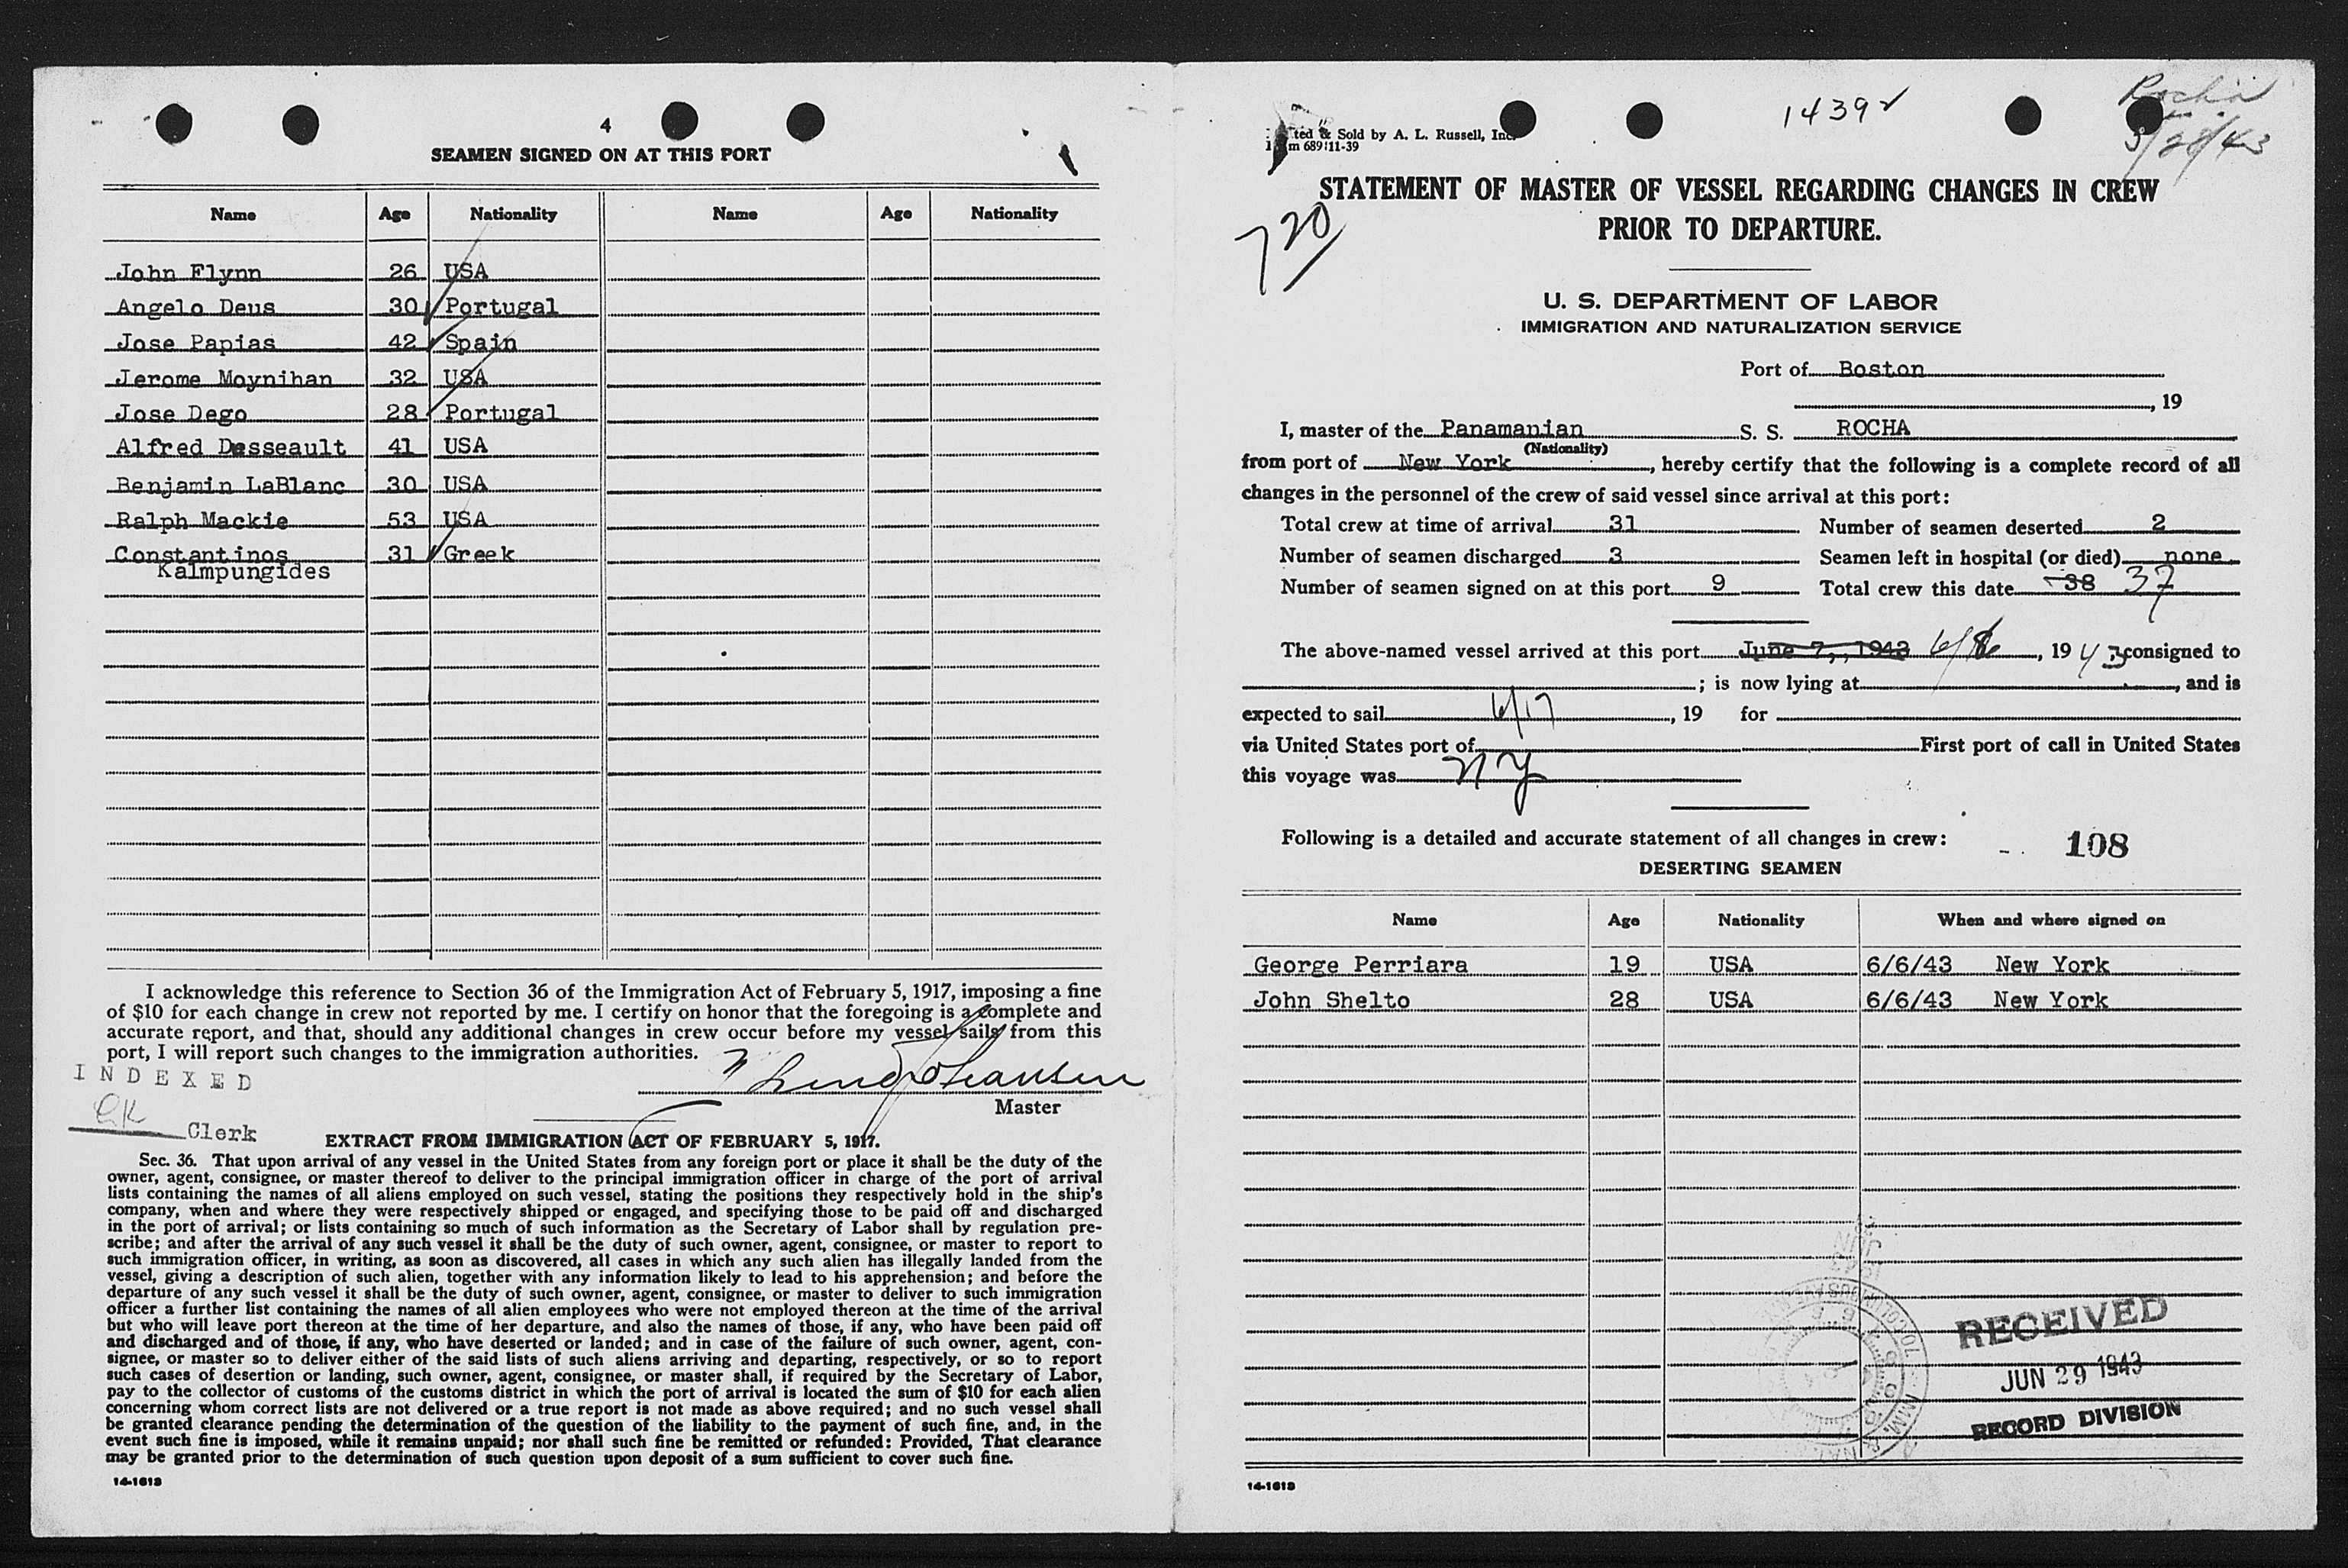 4
SEAMEN SIGNED ON AT THIS PORT
Name Age Nationality Name Age Nationality
John Flynn 26 USA
Angelo Deus 30 Portugal
Jose Papias 42 Spain
Jerome Moynihan 32 USA
Jose Dego 28 Portugal
Alfred Desseault 41 USA
Benjamin LaBlanc 30 USA
Ralph Mackie 53 USA
Constantinos 31 Greek
Kalmpungides
I acknowledge this reference to Section 36 of the Immigration Act of February 5, 1917, imposing a fine
of $10 for each change in crew not reported by me. I certify on honor that the foregoing is a complete and
accurate report, and that, should any additional changes in crew occur before my vessel sails from this
port, I will report such changes to the immigration authorities.
INDEXED
Master
Clerk
EXTRACT FROM IMMIGRATION ACT OF FEBRUARY 5, 1917.
Sec. 36. That upon arrival of any vessel in the United States from any foreign port or place it shall be the duty of the
owner, agent, consignee, or master thereof to deliver to the principal immigration officer in charge of the port of arrival
lists containing the names of all aliens employed on such vessel, stating the positions they respectively hold in the ship's
company, when and where they were respectively shipped or engaged, and specifying those to be paid off and discharged
in the port of arrival; or lists containing so much of such information as the Secretary of Labor shall by regulation pre-
scribe; and after the arrival of any such vessel it shall be the duty of such owner, agent, consignee, or master to report to
such immigration officer, in writing, as soon as discovered, all cases in which any such alien has illegally landed from the
vessel, giving a description of such alien, together with any information likely to lead to his apprehension; and before the
departure of any such vessel it shall be the duty of such owner, agent, consignee, or master to deliver to such immigration
officer a further list containing the names of all alien employees who were not employed thereon at the time of the arrival
but who will leave port thereon at the time of her departure, and also the names of those, if any, who have been paid off
and discharged and of those, if any, who have deserted or landed; and in case of the failure of such owner, agent, con-
signee, or master so to deliver either of the said lists of such aliens arriving and departing, respectively, or so to report
such cases of desertion or landing, such owner, agent, consignee, or master shall, if required by the Secretary of Labor,
pay to the collector of customs of the customs district in which the port of arrival is located the sum of $10 for each alien
concerning whom correct lists are not delivered or a true report is not made as above required; and no such vessel shall
be granted clearance pending the determination of the question of the liability to the payment of such fine, and, in the
event such fine is imposed, while it remains unpaid; nor shall such fine be remitted or refunded: Provided, That clearance
may be granted prior to the determination of such question upon deposit of a sum sufficient to cover such fine.
14-1613
Rocha
14392
5/28/43
& Sold by A. L. Russell, Inc.
689 11-39
STATEMENT OF MASTER OF VESSEL REGARDING CHANGES IN CREW
PRIOR TO DEPARTURE.
720
U. S. DEPARTMENT OF LABOR
IMMIGRATION AND NATURALIZATION SERVICE
Port of Boston
, 19
I, master of the Panamanian S. S. ROCHA
(Nationality)
from port of New York, hereby certify that the following is a complete record of all
changes in the personnel of the crew of said vessel since arrival at this port:
Total crew at time of arrival 31 Number of seamen deserted 2
Number of seamen discharged 3 Seamen left in hospital (or died) none
Number of seamen signed on at this port 9 Total crew this date 38 37
The above-named vessel arrived at this port June 7, 1943 6/8, 1943, consigned to
; is now lying at , and is
expected to sail 6/17, 19 for
via United States port of First port of call in United States
this voyage was NY
Following is a detailed and accurate statement of all changes in crew: 108
DESERTING SEAMEN
Name Age Nationality When and where signed on
George Perriara 19 USA 6/6/43 New York
John Shelto 28 USA 6/6/43 New York
RECEIVED
JUN 29 1943
RECORD DIVISION
14-1613